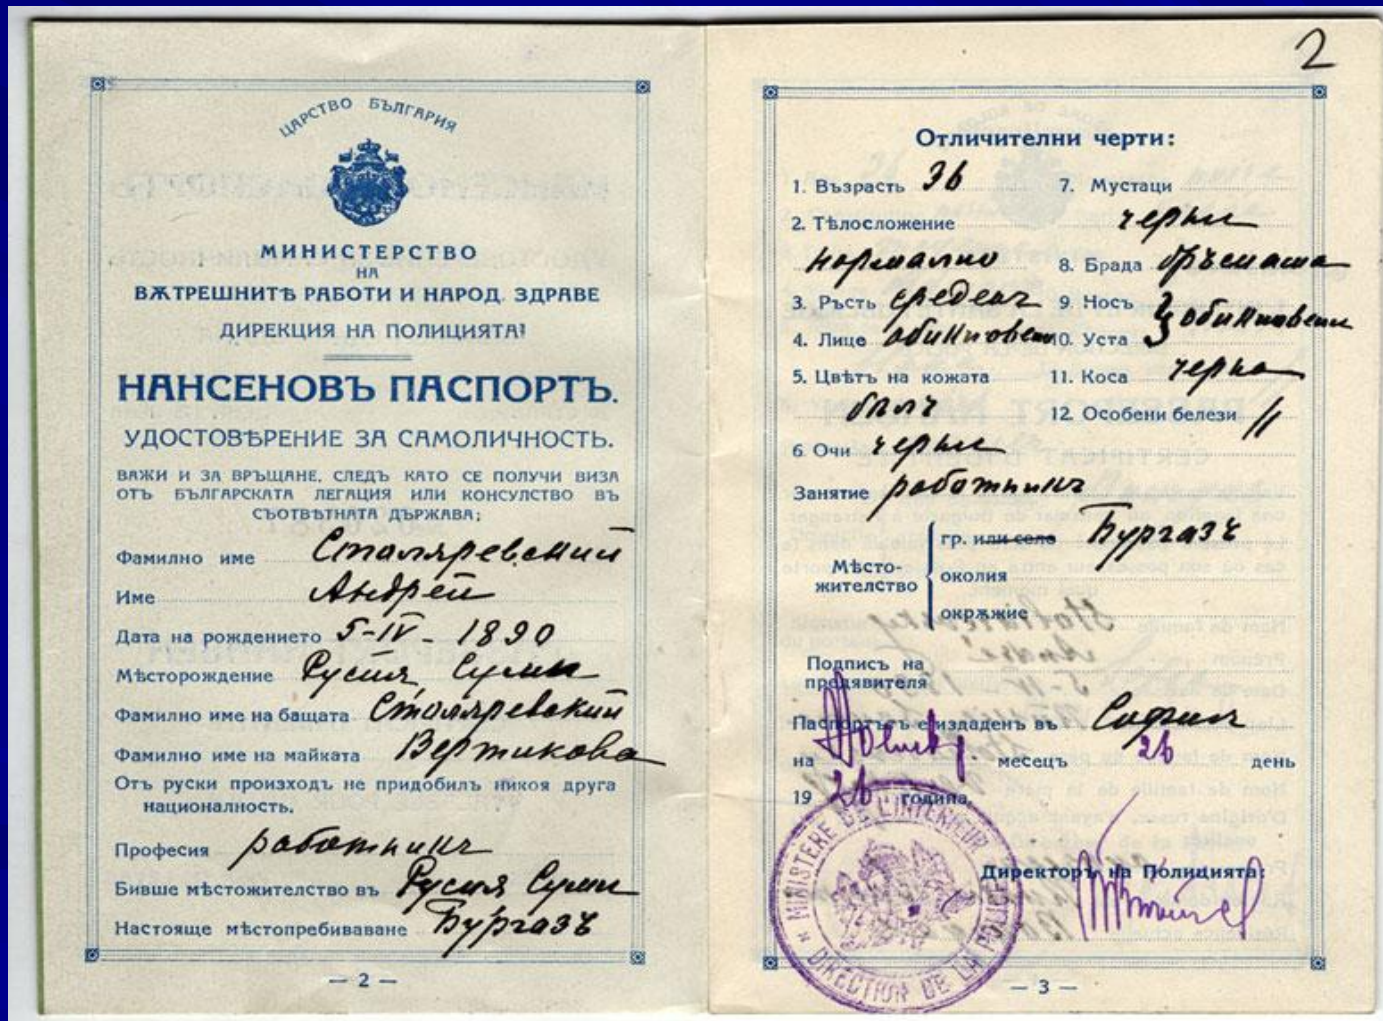 ЦАРСТВО БЪЛГАРИЯ
МИНИСТЕРСТВО
НА
ВѪТРЕШНИТѢ РАБОТИ И НАРОД. ЗДРАВЕ
ДИРЕКЦИЯ НА ПОЛИЦИЯТА:
НАНСЕНОВЪ ПАСПОРТЪ.
УДОСТОВѢРЕНИЕ ЗА САМОЛИЧНОСТЬ.
ВАЖИ И ЗА ВРЪЩАНЕ, СЛЕДЪ КАТО СЕ ПОЛУЧИ ВИЗА
ОТЪ БЪЛГАРСКАТА ЛЕГАЦИЯ ИЛИ КОНСУЛСТВО ВЪ
СЪОТВѢТНАТА ДЪРЖАВА;
Фамилно име Столяревский
Име Андрей
Дата на рождението 5-IV-1890
Мѣсторождение Русия Суми
Фамилно име на бащата Столяревский
Фамилно име на майката Вертикова
Отъ руски произходъ не придобилъ никоя друга
националность.
Професия работникъ
Бивше мѣстожителство въ Русия Суми
Настояще мѣстопребиваване Бургазъ
— 2 —
2
Отличителни черти:
1. Възрасть 36
2. Тѣлосложение
нормално
3. Ръсть среденъ
4. Лице обикновен
5. Цвѣтъ на кожата
бялъ
6. Очи черни
7. Мустаци
черни
8. Брада бръсната
9. Носъ
10. Уста обикновени
11. Коса черна
12. Особени белези //
Занятие работникъ
Мѣсто-
жителство
гр. или село Бургазъ
околия
окрѫжие
Подпись на
предявителя
Паспортътъ е издаденъ въ София
на Юлий месецъ 26 день
19 26 година.
Директоръ на Полицията:
MINISTERE DE L'INTERIEUR
DIRECTION DE LA POLICE
— 3 —